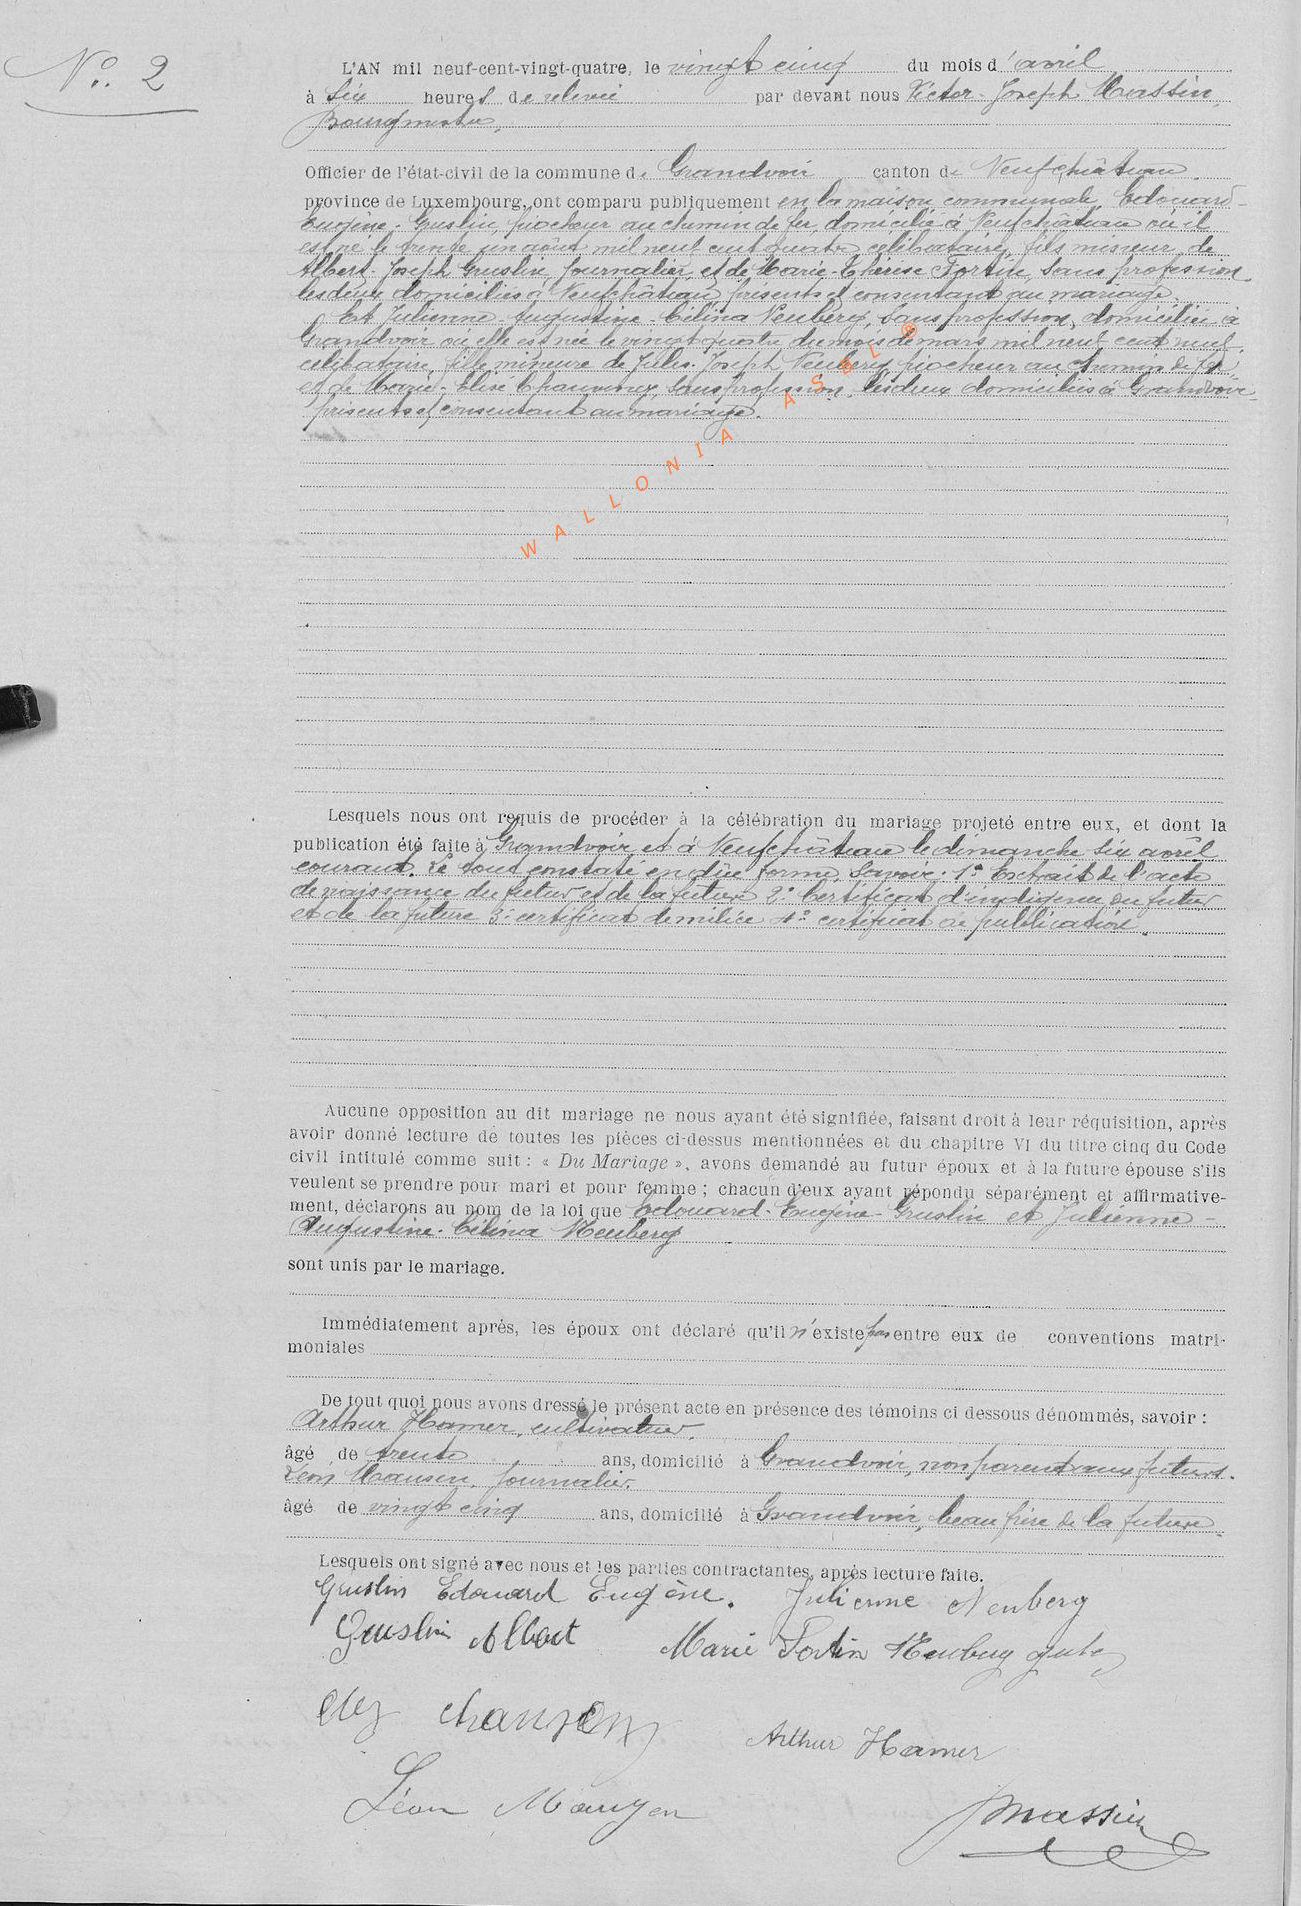 No. 2
L'AN mil neuf-cent-vingt-quatre, le vingt cinq du mois d'avril
à six heures de relevée par devant nous Victor-Joseph Massin,
Bourgmestre,
Officier de l'état-civil de la commune de Grandvoir canton de Neufchâteau
province de Luxembourg, ont comparu publiquement en la maison communale Edouard-
Eugène-Gruslin, piocheur au chemin de fer, domicilié à Neufchâteau où il
est né le trente un août mil neuf cent quatre célibataire, fils mineur de
Albert-Joseph Gruslin, journalier et de Marie-Thérèse Fortin, sans profession
les deux domiciliés à Neufchâteau présents et consentant au mariage.
Et Julienne-Augustine-Célina Neuberg, sans profession, domiciliée à
Grandvoir où elle est née le vingt quatre du mois de mars mil neuf cent neuf
célibataire, fille mineure de Jules-Joseph Neuberg piocheur au chemin de fer
et de Marie-Elise sans profession, les deux domiciliés à Grandvoir
présents et consentant au mariage.
WALLONIA ASBL ®
Lesquels nous ont requis de procéder à la célébration du mariage projeté entre eux, et dont la
publication été faite à Grandvoir et à Neufchâteau le dimanche six avril
courant. Le tout constaté en dûe forme, savoir: 1° Extrait de l'acte
de naissance du futur et de la future 2° Certificat d'indigence du futur
et de la future 3° certificat de milice 4° certificat de publication.
Aucune opposition au dit mariage ne nous ayant été signifiée, faisant droit à leur réquisition, après
avoir donné lecture de toutes les pièces ci-dessus mentionnées et du chapitre VI du titre cinq du Code
civil intitulé comme suit : « Du Mariage », avons demandé au futur époux et à la future épouse s'ils
veulent se prendre pour mari et pour femme ; chacun d'eux ayant répondu séparément et affirmative-
ment, déclarons au nom de la loi que Edouard-Eugène-Gruslin et Julienne-
Augustine-Célina Neuberg
sont unis par le mariage.
Immédiatement après, les époux ont déclaré qu'il n'existe pas entre eux de conventions matri-
moniales
De tout quoi nous avons dressé le présent acte en présence des témoins ci dessous dénommés, savoir :
Arthur Hamer, cultivateur,
âgé de trente ans, domicilié à Grandvoir, non parent aux futurs.
Léon journalier,
âgé de vingt cinq ans, domicilié à Grandvoir, beau frère de la future
Lesquels ont signé avec nous et les parties contractantes, après lecture faite.
Gruslin Edouard Eugène. Julienne Neuberg
Gruslin Albert Marie Fortin Neuberg
Arthur Hamer
Léon
Massin